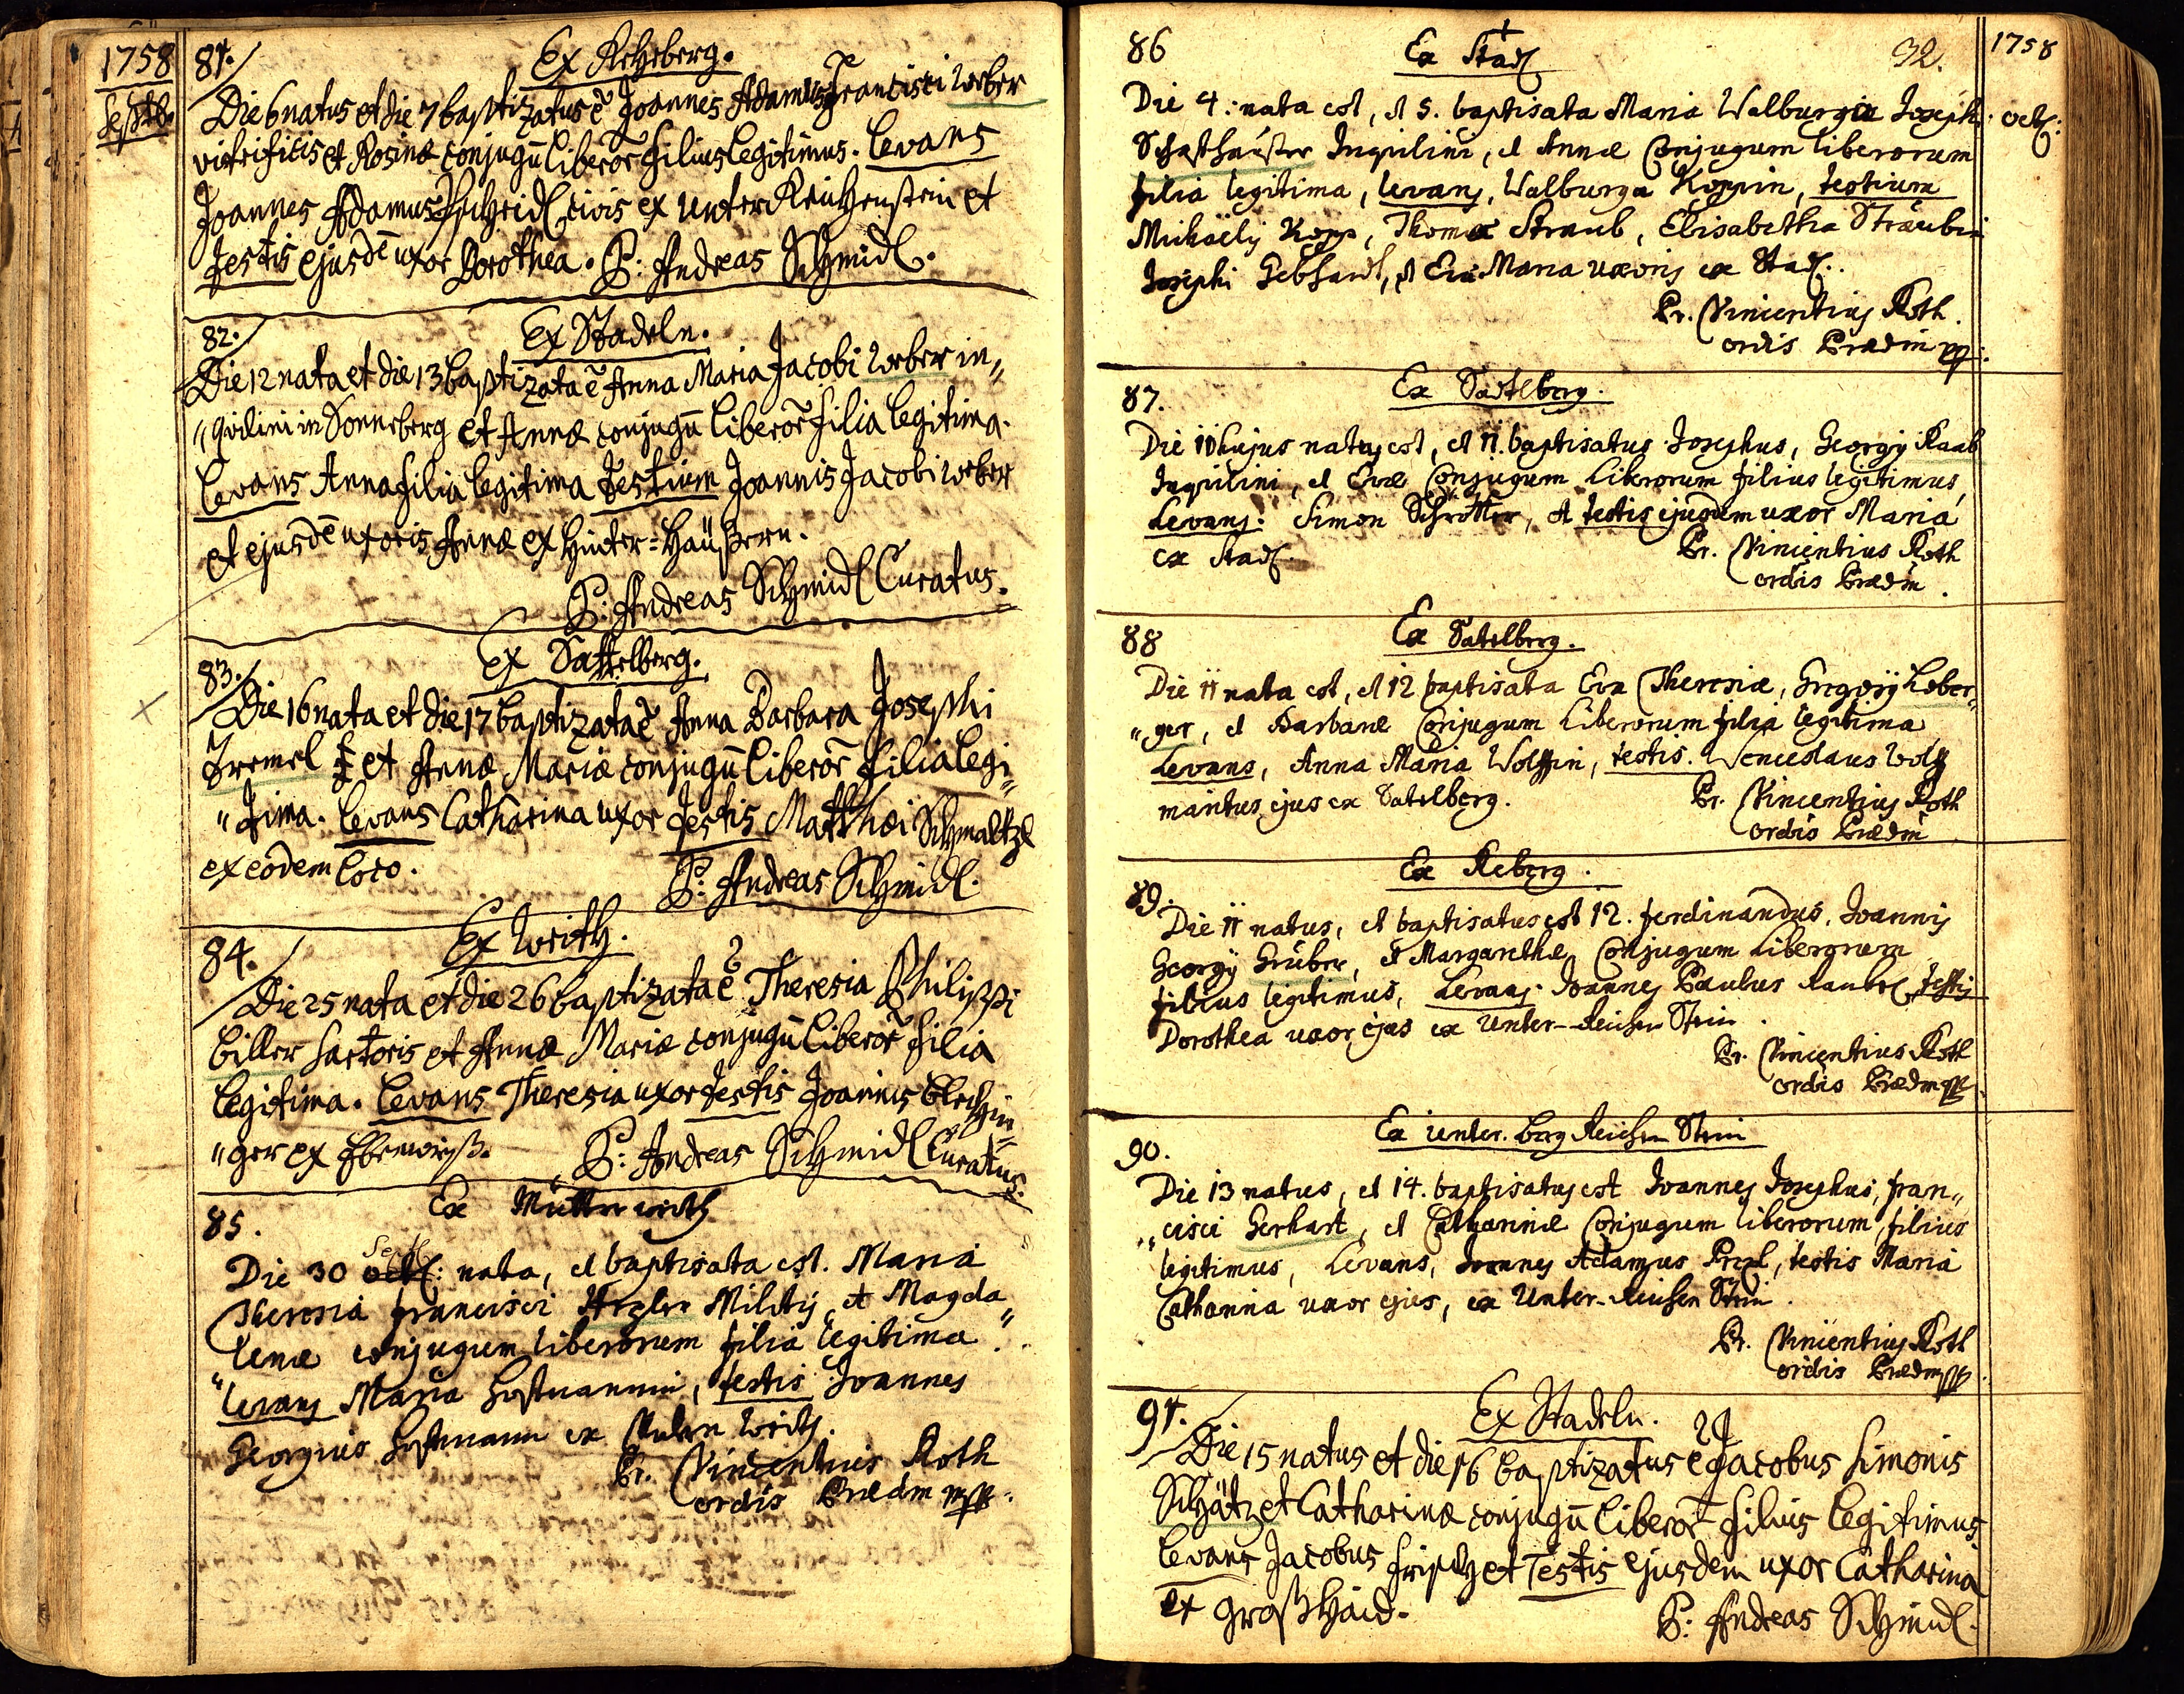 1758
Septb.
81.
Ex Rehberg.
Die 6 natus et die 7 baptizatus ē Joannes Adamus Francisci Weber
vitrificis et Rosinæ conjugū liberor̄ filius legitimus. Levans
Joannes Adamus civis ex Unter Reichenstein et
testis ejusdē uxor Dorothea. P: Andreas Schmidl.
82.
Ex Stadeln.
Die 12 nata et die 13 baptizata ē Anna Maria Jacobi Weber in„
„quilini in Sonneberg et Annæ conjugū liberor̄ filia legitima.
Levans Anna filia legitima testium Joannis Jacobi Weber
et ejusdē uxoris Annæ ex Hinter=Häußern.
P: Andreas Schmidl Curatus.
83.
Ex Sattelberg.
Die 16 nata et die 17 baptizata ē Anna Barbara Josephi
Iremel et Annæ Mariæ conjugū liberor̄ filia legi„
„tima. Levans Catharina uxor testis Matthæi Schmaltzl
ex eodem loco.
P: Andreas Schmidl.
84.
Ex Writh.
Die 25 nata et die 26 baptizata ē Theresia Philippi
Biller sartoris et Annæ Mariæ conjugū liberor̄ filia
legitima. Levans Theresia uxor testis Joannis Blechin„
„ger ex
P: Andreas Schmidl Curatus.
85.
Ex
Die 30 Sept: nata, et baptisata est. Maria
Theresia Francisci Hezler Militis, et Magda„
„lenæ conjugum liberorum filia legitima.
Levans Maria Hoffmannin, testis Joannes
Georgius Hoffmann ex
Pr. Vincentius Roth
ordis Prædm mpp.
86
Ex Stadl
32.
1758
Die 4: nata est, et 5. baptisata Maria Walburgæ Joseph.
octb:
Schafhauser Inquilini, et Annæ Conjugum liberorum
filia legitima, levans, Walburga Koppin, testium
Michaelis Kopp, Thomæ Straub, Elisabetha Straubin
Josephi Gebhardt, et Eva Maria uxoris ex Stadl.
Pr. Vincentius Roth.
ordis Prædm mp.
87.
Ex Satelberg.
Die 10 hujus natus est, et 11. baptisatus Josephus, Georgij Raab
Inquilini, et Evæ Conjugum Liberorum filius legitimus,
Levans: Simon Schrötter, et testis ejusdem uxor Maria
ex Stadl.
Pr. Vincentius Roth
ordis Prædm.
88
Ex Satelberg.
Die 11 nata est, et 12 baptisata Eva Theresiæ, Gregorij Leber„
„ger, et Barbaræ Conjugum Liberorum filia legitima
Levans, Anna Maria Wolffin, testis. Wenceslaus Wolff
maritus ejus ex Satelberg.
Pr. Vincentius Roth
ordis Prædm
Ex Reberg.
89.
Die 11 natus, et baptisatus est 12. Ferdinandus, Joannis
Georgij Gruber, et Margarethæ Conjugum Liberorum
filius legitimus, Levans. Joannes Paulus testis
Dorothea uxor ejus ex Unter-Reichen Stein.
Pr. Vincentius Roth
ordis Prædm mpp.
Ex Unter. berg Reichen Stein
90.
Die 13 natus, et 14. baptisatus est Joannes Josephus, Fran„
„cisci Gerhart, et Catharinæ Conjugum liberorum filius
legitimus, Levans, Joannes Adamus testis Maria
Catharina uxor ejus, ex Unter-Reichen Stein.
Pr. Vincentius Roth
ordis Prædm mpp.
91.
Ex Stadeln.
Die 15 natus et die 16 baptizatus ē Jacobus Simonis
Schätz et Catharinæ conjugū liberor̄ filius legitimus
Levans Jacobus et testis ejusdem uxor Catharina
ex Großhaid.
P: Andreas Schmidl.